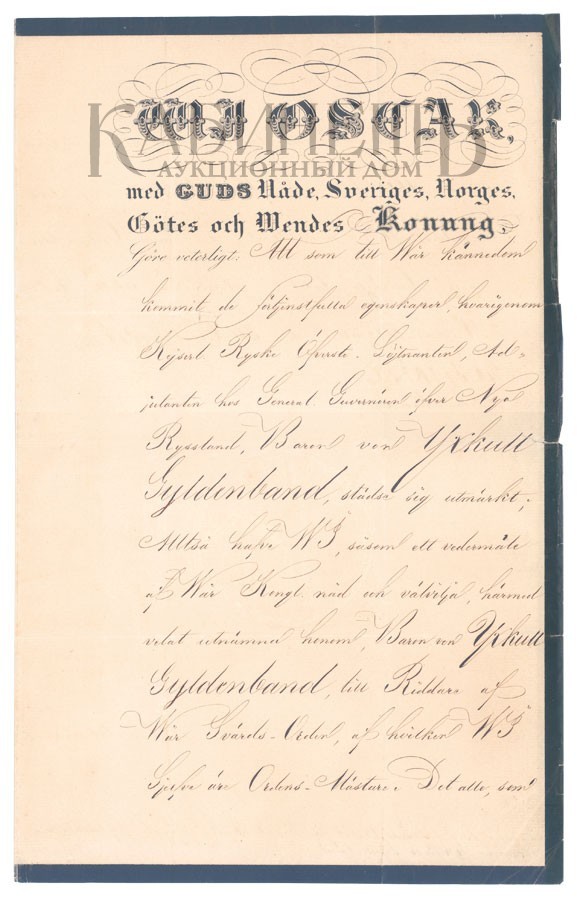 WIJ OSCAR,
КАБИНЕТЪ
АУКЦИОННЫЙ ДОМ
med GUDS Nåde, Sveriges, Norges,
Götes och Wendes Konung,
Göre veterligt: Att som till Wår kännedom
kommit de förtjenstfulla egenskaper, hvarigenom
Kejserl. Ryske Öfverste-Löjtnanten, Ad-
jutanten hos General Guvernören öfver Nya
Ryssland, Baron von Yxkull
Gyldenband, städse sig utmärkt;
Alltså hafve WJ, såsom ett vedermäle
af Wår Kongl. nåd och välvilja, härmed
velat utnämna honom, Baron von Yxkull
Gyldenband, till Riddare af
Wår Svärds-Orden, af hvilken WJ
Sjelfve äre Ordens-Mästare. Det alle, som